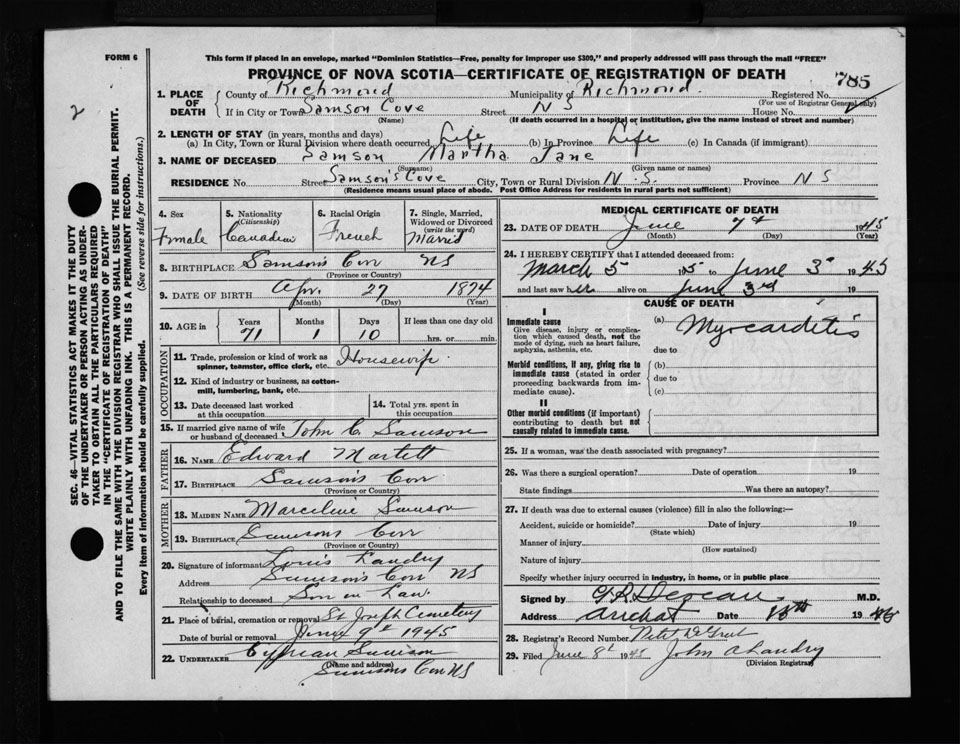 FORM 6
This form if placed in an envelope, marked "Dominion Statistics—Free, penalty for improper use $300," and properly addressed will pass through the mail "FREE"
PROVINCE OF NOVA SCOTIA—CERTIFICATE OF REGISTRATION OF DEATH
785
2
SEC. 46—VITAL STATISTICS ACT MAKES IT THE DUTY
OF THE UNDERTAKER OR PERSON ACTING AS UNDER-
TAKER TO OBTAIN ALL THE PARTICULARS REQUIRED
IN THE "CERTIFICATE OF REGISTRATION OF DEATH"
AND TO FILE THE SAME WITH THE DIVISION REGISTRAR WHO SHALL ISSUE THE BURIAL PERMIT.
WRITE PLAINLY WITH UNFADING INK. THIS IS A PERMANENT RECORD.
Every item of information should be carefully supplied. (See reverse side for instructions.)
1. PLACE OF DEATH County of Richmond Municipality of Richmond. Registered No.
(For use of Registrar General only)
If in City or Town Samson Cove Street N S House No.
(Name) (If death occurred in a hospital or institution, give the name instead of street and number)
2. LENGTH OF STAY (in years, months and days)
(a) In City, Town or Rural Division where death occurred Life (b) In Province Life (c) In Canada (if immigrant)
3. NAME OF DECEASED Samson Martha Jane
(Surname) (Given name or names)
RESIDENCE No. Street Samson's Cove City, Town or Rural Division N. S. Province N S
(Residence means usual place of abode. Post Office Address for residents in rural parts not sufficient)
4. Sex 5. Nationality (Citizenship) 6. Racial Origin 7. Single, Married, Widowed or Divorced (write the word)
Female Canadian French Married
8. BIRTHPLACE Samson's Cov NS
(Province or Country)
9. DATE OF BIRTH Apr. 27 1874
(Month) (Day) (Year)
10. AGE in Years Months Days If less than one day old
71 1 10 hrs. or min.
OCCUPATION
11. Trade, profession or kind of work as spinner, teamster, office clerk, etc. Housewife
12. Kind of industry or business, as cotton-mill, lumbering, bank, etc.
13. Date deceased last worked at this occupation 14. Total yrs. spent in this occupation
15. If married give name of wife or husband of deceased John C. Samson
FATHER
16. NAME Edward Martell
17. BIRTHPLACE Samson's Cov
(Province or Country)
MOTHER
18. MAIDEN NAME Marceline Samson
19. BIRTHPLACE Samsons Cov
(Province or Country)
20. Signature of informant Louis Landry
Address Samson's Cov NS
Relationship to deceased Son in Law
21. Place of burial, cremation or removal St Joseph Cemetery
Date of burial or removal June 9th 1945
22. UNDERTAKER Cyprian Samson
(Name and address)
Samsons Cov NS
MEDICAL CERTIFICATE OF DEATH
23. DATE OF DEATH June 7th 1945
(Month) (Day) (Year)
24. I HEREBY CERTIFY that I attended deceased from:
March 5 to June 3 1945
and last saw her alive on June 3rd 19
CAUSE OF DEATH
I
Immediate cause
Give disease, injury or complica-
tion which caused death, not the
mode of dying, such as heart failure,
asphyxia, asthenia, etc.
(a) Myocarditis
due to
Morbid conditions, if any, giving rise to
immediate cause (stated in order
proceeding backwards from im-
mediate cause).
(b)
due to
(c)
II
Other morbid conditions (if important)
contributing to death but not
causally related to immediate cause.
25. If a woman, was the death associated with pregnancy?
26. Was there a surgical operation? Date of operation 19
State findings Was there an autopsy?
27. If death was due to external causes (violence) fill in also the following:—
Accident, suicide or homicide? Date of injury 19
(State which)
Manner of injury
(How sustained)
Nature of injury
Specify whether injury occurred in industry, in home, or in public place
Signed by G.R. Deveau M.D.
Address Arichat Date 19 45
28. Registrar's Record Number Petit De Grat
29. Filed June 8th 1945 John A Landry
(Division Registrar)